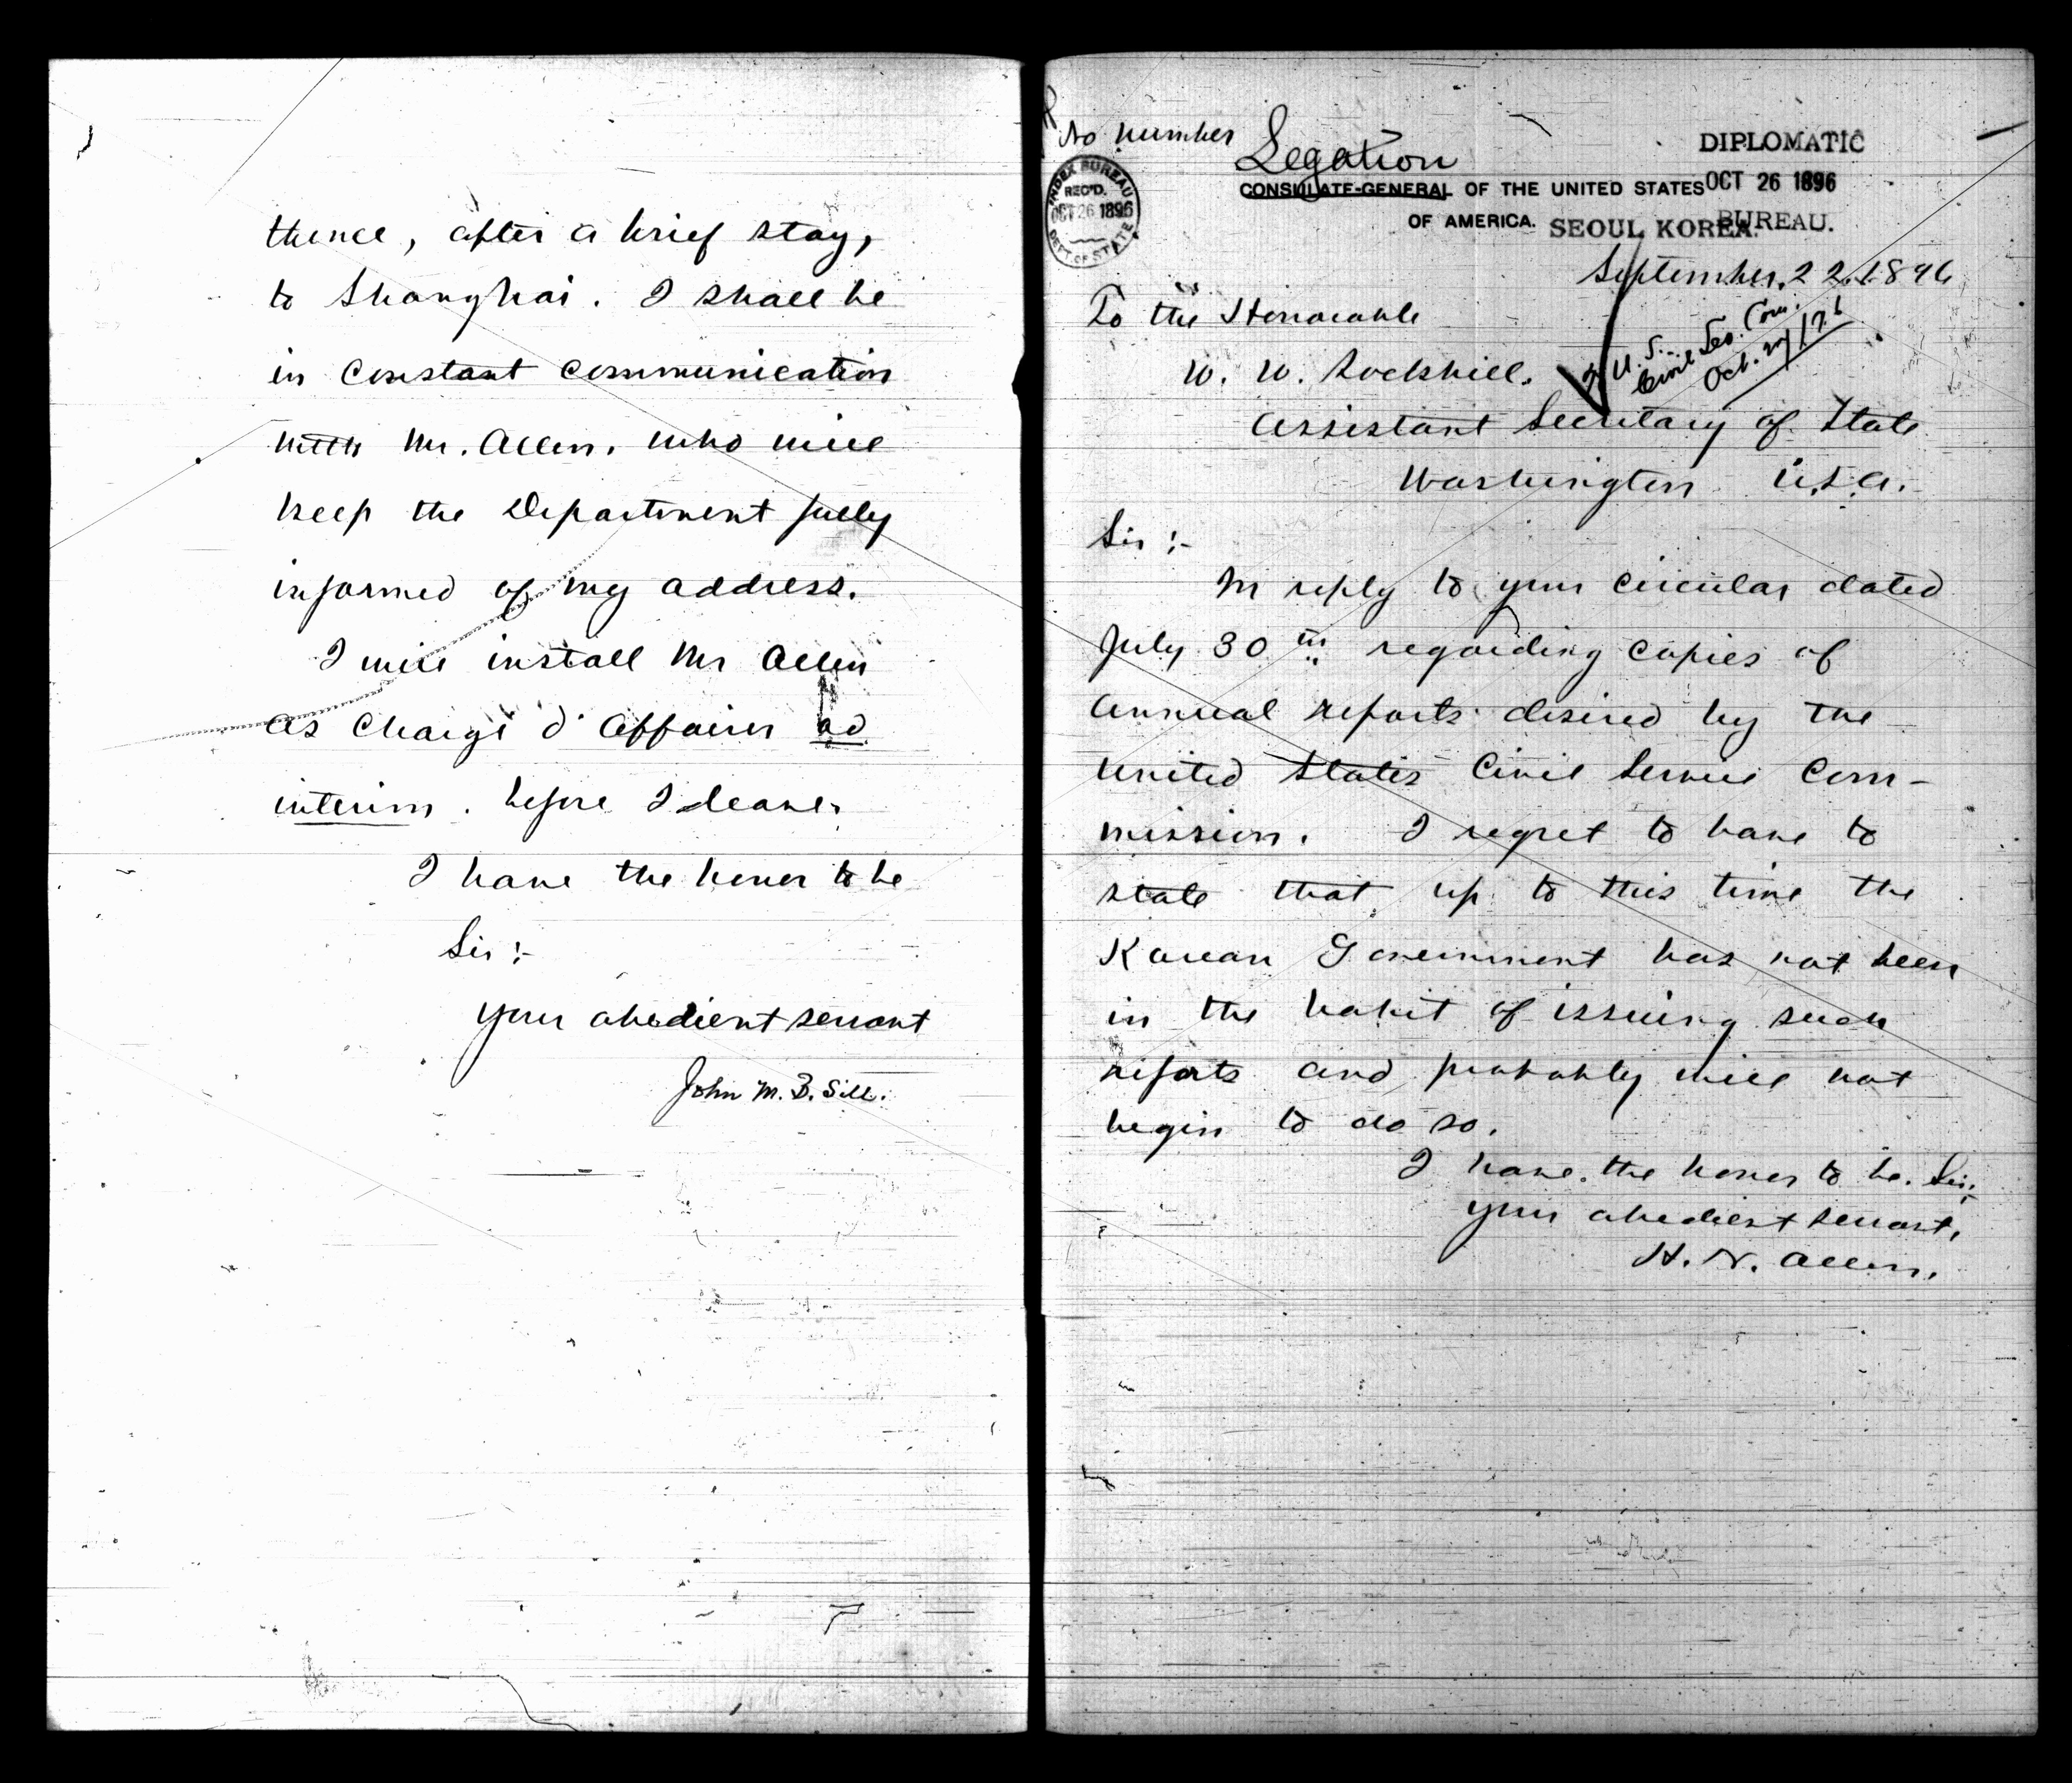 thence, after a brief stay,
to Shanghai. I shall be
in constant communication
with Mr. Allen, who will
keep the Department fully
informed of my address.
I will install Mr Allen
as Chargé d'Affaires ad
interim. before I leave.
I have the honor to be
Sir:-
your obedient servant
John M. B. Sill.
No number
Legation
CONSULATE-GENERAL OF THE UNITED STATES
OF AMERICA. SEOUL KOREA.
DIPLOMATIC
OCT 26 1896
BUREAU.
INDEX BUREAU
REC'D.
OCT 26 1896
DEPT. OF STATE
September. 22. 1896
To the Honorable
W. W. Rockhill.
U. S.
Civil Ser. Com.
Oct. 27/96
Assistant Secretary of State
Washington U.S.A.
Sir:-
In reply to your circular dated
July 30th regarding copies of
annual reports desired by the
United States Civil Service Com-
mission. I regret to have to
state that up to this time the
Korean Government has not been
in the habit of issuing such
reports and probably will not
begin to do so.
I have the honor to be. Sir:
your obedient servant,
H. N. Allen.